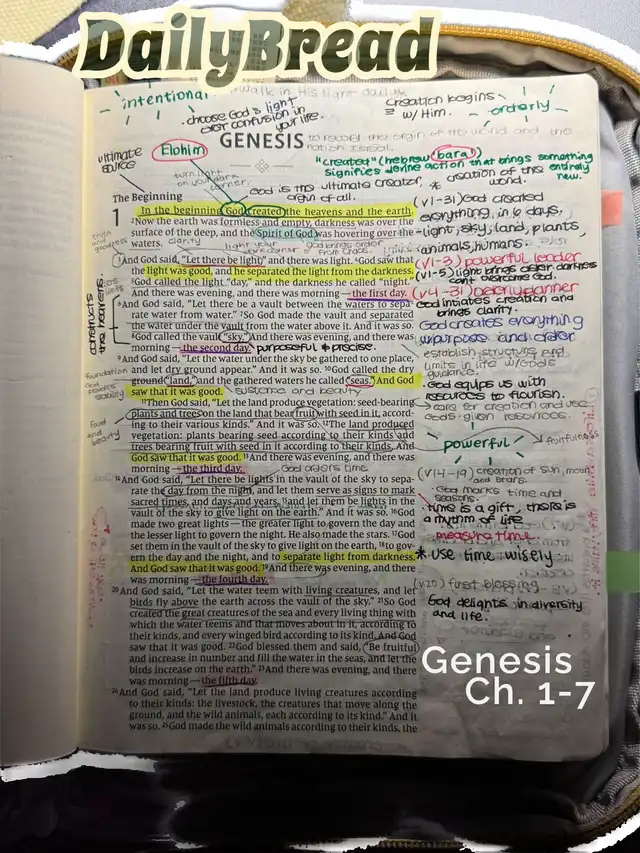 DailyBread
intentional
walk in His light daily
choose God's light
over confusion in
your life.
Creation begins
w/ Him.
orderly
GENESIS
to record the origin of the world and the
nation Israel.
ultimate
source
Elohim
"created" (hebrew bara) that brings something
signifies divine action
entirely
new.
turn light
on your dark
corner.
God is the ultimate creator,
origin of all.
* creation of the
world.
The Beginning
1 In the beginning God created the heavens and the earth.
2Now the earth was formless and empty, darkness was over the
surface of the deep, and the Spirit of God was hovering over the
waters.
clarity
God brings order
from chaos.
3And God said, "Let there be light," and there was light. 4God saw that
the light was good, and he separated the light from the darkness.
5God called the light "day," and the darkness he called "night."
And there was evening, and there was morning—the first day.
6And God said, "Let there be a vault between the waters to sepa-
rate water from water." 7So God made the vault and separated
the water under the vault from the water above it. And it was so.
8God called the vault "sky." And there was evening, and there was
morning—the second day.
purposeful & precise.
9And God said, "Let the water under the sky be gathered to one place,
and let dry ground appear." And it was so. 10God called the dry
ground "land," and the gathered waters he called "seas." And God
saw that it was good.
sustenance and beauty
11Then God said, "Let the land produce vegetation: seed-bearing
plants and trees on the land that bear fruit with seed in it, accord-
ing to their various kinds." And it was so. 12The land produced
vegetation: plants bearing seed according to their kinds and
trees bearing fruit with seed in it according to their kinds. And
God saw that it was good. 13And there was evening, and there was
morning—the third day.
God orders time
14And God said, "Let there be lights in the vault of the sky to sepa-
rate the day from the night, and let them serve as signs to mark
sacred times, and days and years, 15and let them be lights in the
vault of the sky to give light on the earth." And it was so. 16God
made two great lights—the greater light to govern the day and
the lesser light to govern the night. He also made the stars. 17God
set them in the vault of the sky to give light on the earth, 18to gov-
ern the day and the night, and to separate light from darkness.
And God saw that it was good. 19And there was evening, and there
was morning—the fourth day.
20And God said, "Let the water teem with living creatures, and let
birds fly above the earth across the vault of the sky." 21So God
created the great creatures of the sea and every living thing with
which the water teems and that moves about in it, according to
their kinds, and every winged bird according to its kind. And God
saw that it was good. 22God blessed them and said, "Be fruitful
and increase in number and fill the water in the seas, and let the
birds increase on the earth." 23And there was evening, and there
was morning—the fifth day.
24And God said, "Let the land produce living creatures according
to their kinds: the livestock, the creatures that move along the
ground, and the wild animals, each according to its kind." And it
was so. 25God made the wild animals according to their kinds, the
constructs
the heavens
foundation
God provides
stability
Food
and
beauty
(v1-31) God created
everything, in 6 days,
-light, sky, land, plants,
animals, humans.
(v1-3) powerful leader
(v1-5) light brings order darkness
can't overcome God.
(v4-31) orderly planner
God initiates creation and
brings clarity.
God creates everything
w/ purpose and order
establish structure and
limits in life w/ God's
guidance.
God equips us with
resources to flourish.
→ care for creation and use
God-given resources.
powerful
fruitfulness
(v14-19) creation of sun, moon
and stars.
God marks time and
seasons.
time is a gift, there is
a rhythm of life
measure time.
* use time wisely
(v20) first blessing
God delights in diversity
and life.
Genesis
Ch. 1-7